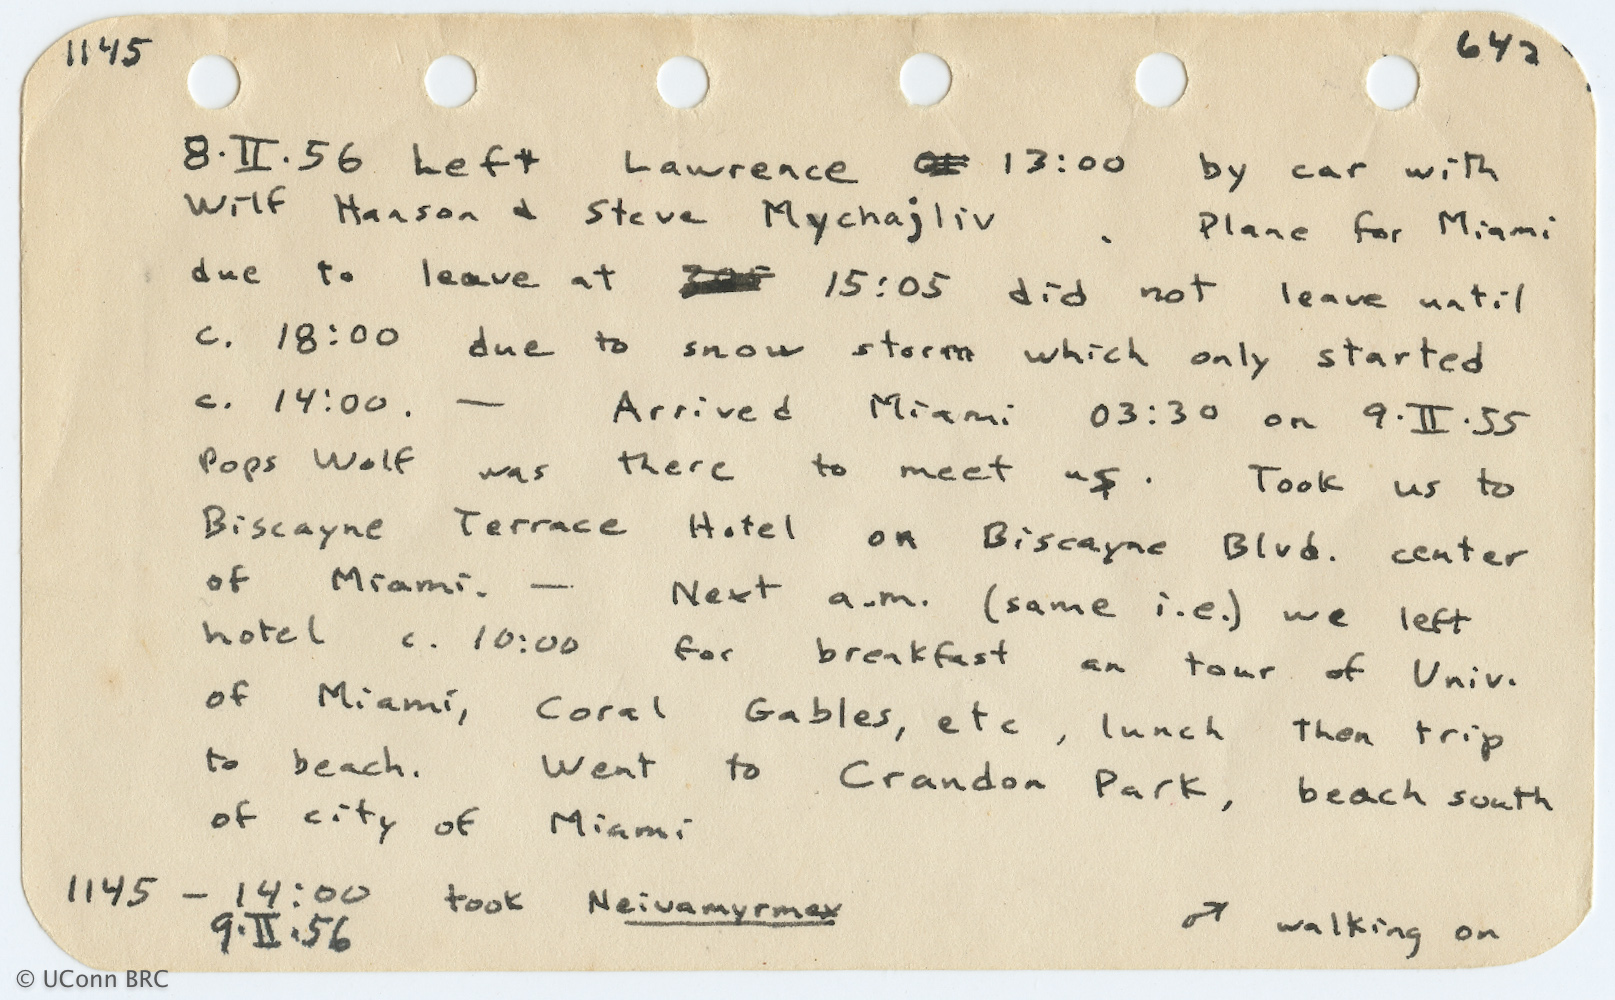 1145 642
8·II·56 Left Lawrence 13:00 by car with
Wilf Hanson & Steve Mychajliv . Plane for Miami
due to leave at 15:05 did not leave until
c. 18:00 due to snow storm which only started
c. 14:00. — Arrived Miami 03:30 on 9·II·55
Pops Wolf was there to meet us. Took us to
Biscayne Terrace Hotel on Biscayne Blvd. center
of Miami. — Next a.m. (same i.e.) we left
hotel c. 10:00 for breakfast an tour of Univ.
of Miami, Coral Gables, etc, lunch then trip
to beach. Went to Crandon Park, beach south
of city of Miami
1145 – 14:00 took Neivamyrmex ♂ walking on
9·II·56
© UConn BRC